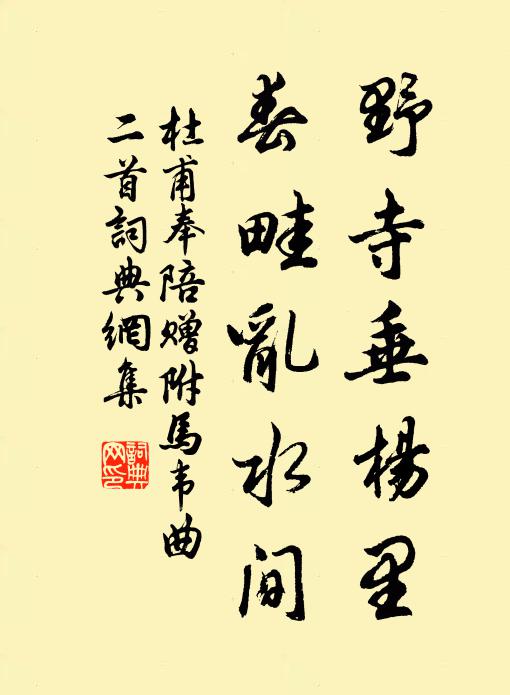 野寺垂楊里
春畦亂水间
杜甫奉陪赠附馬韦曲
二首詞典網集
詞典
网印